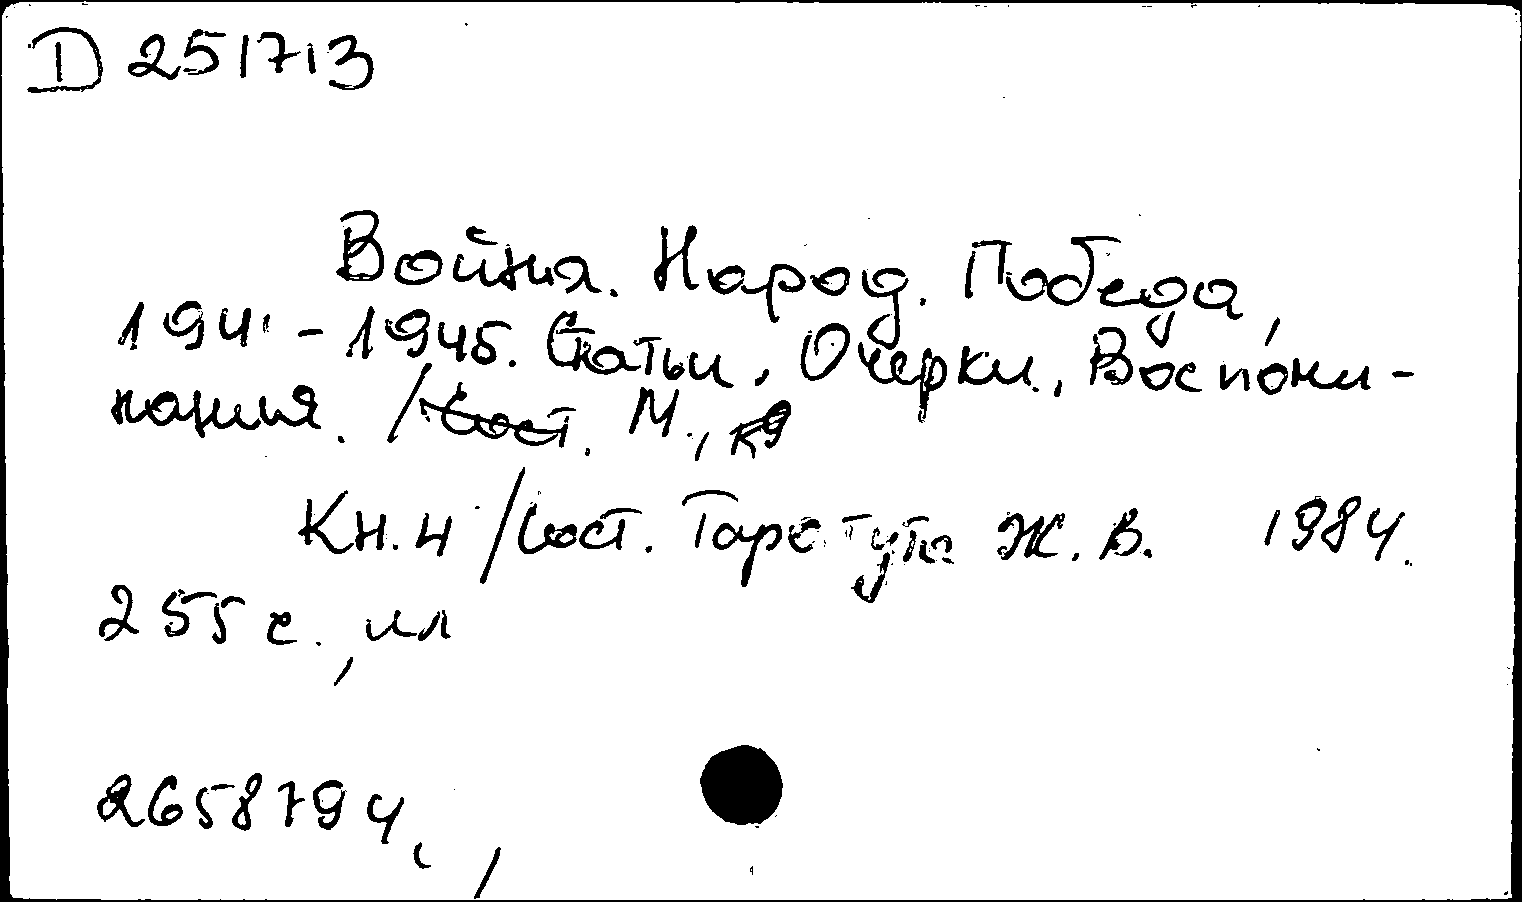 D 251713
Война. Народ. Победа,
1941 - 1945. Статьи. Очерки. Воспоми-
нания. / Сост. М.,
Кн. 4 / Сост. Таратута Ж. В. 1984.
255 с., ил
2658794